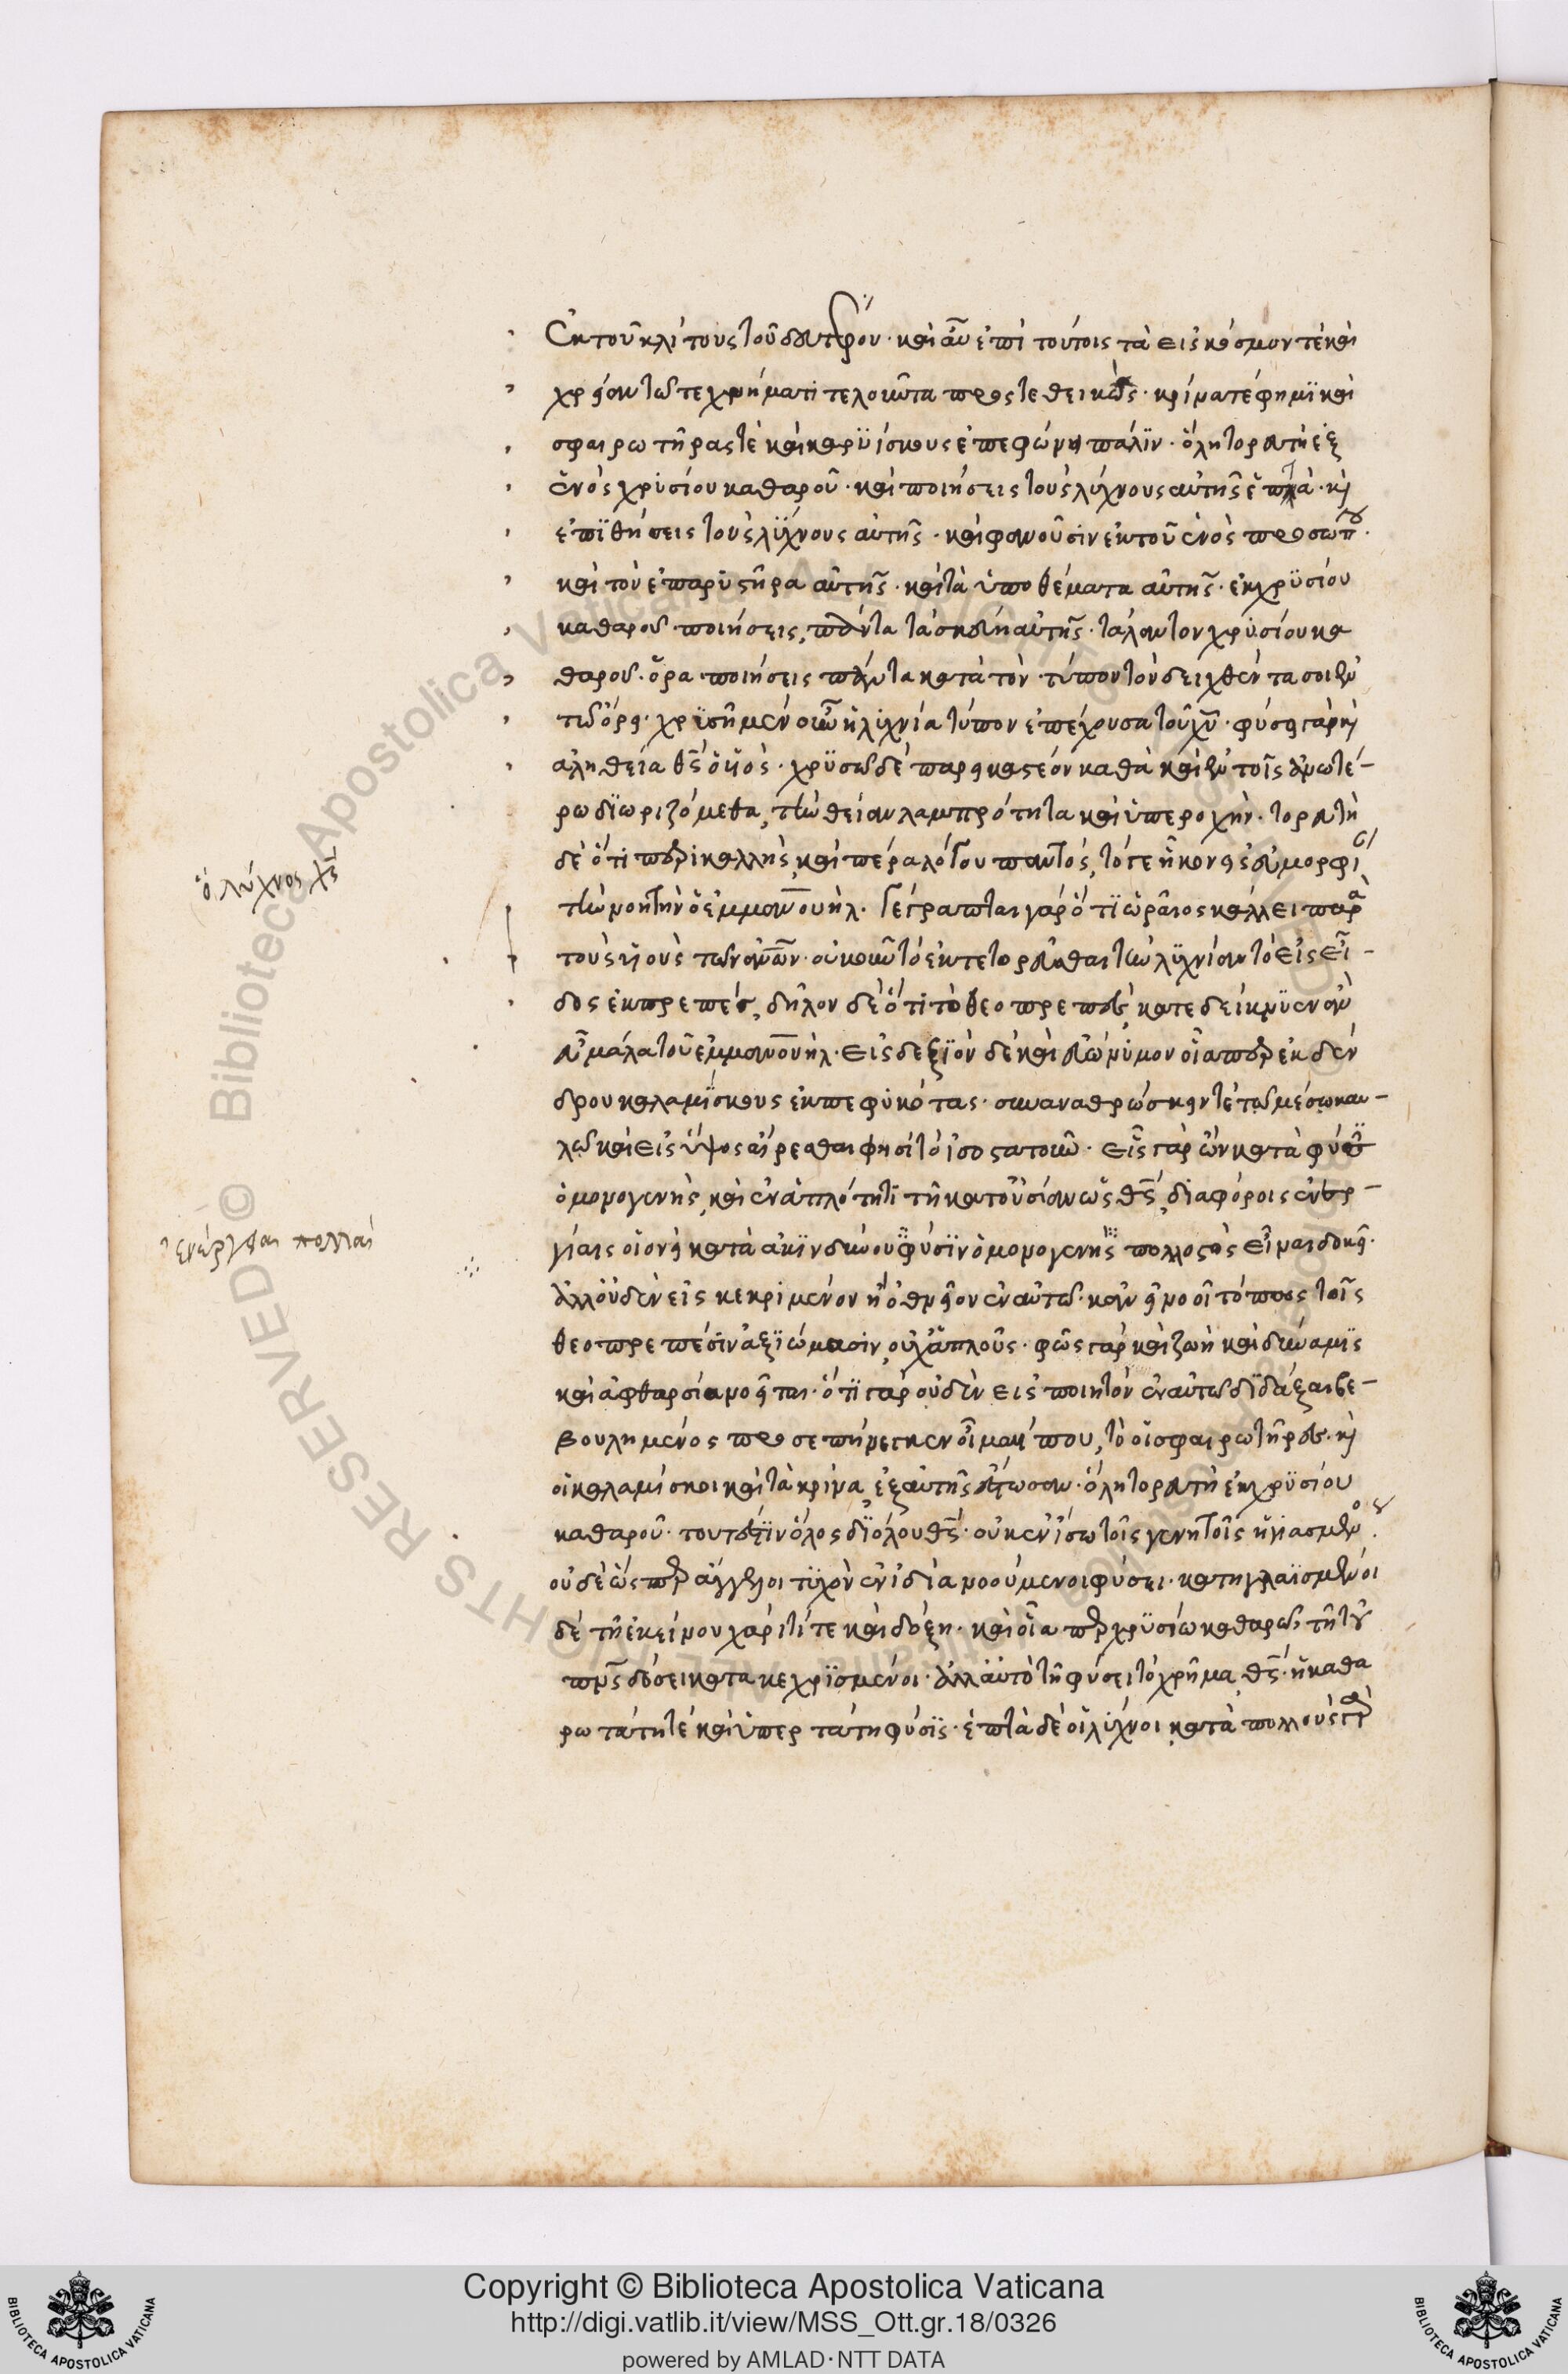 ἐκ τοῦ κλίτους τοῦ δευτέρου· καὶ αὖ ἐπὶ τούτοις τὰ εἰς κόσμον τὲ καὶ
χρείαν τῶ τεχνήματι τελοῦντα προστεθεικὼς· κρίνα τέ φημὶ καὶ
σφαιρωτῆρας τὲ καὶ καρυΐσκους ἐπεφώνει πάλιν· ὅλη τορευτὴ ἐξ
ἑνὸς χρυσίου καθαροῦ· καὶ ποιήσεις τοὺς λύχνους αὐτῆς ἑπτὰ· καὶ
ἐπιθήσεις τοὺς λύχνους αὐτῆς· καὶ φανοῦσιν ἐκ τοῦ ἑνὸς προσώπου·
καὶ τὸν ἐπαρυστῆρα αὐτῆς· καὶ τὰ ὑποθέματα αὐτῆς· ἐκ χρυσίου
καθαροῦ ποιήσεις, πάντα τὰ σκεύη αὐτῆς· τάλαντον χρυσίου κα
θαροῦ· ὅρα ποιήσεις πάντα κατὰ τὸν τύπον τὸν δειχθέντα σοι ἐν
τῶ ὄρει· χρυσῆ μὲν οὖν ἡ λυχνία τύπον ἐπέχουσα τοῦ χυ· φύσει γὰρ καὶ
ἀληθεία θς ὁ υἱὸς· χρυσῶ δὲ παρεικαστέον καθὰ καὶ ἐν τοῖς ἀνωτέ-
ρω διωριζόμεθα, τὴν θείαν λαμπρότητα καὶ ὑπεροχὴν· τορευτὴ
δὲ ὅτι περικαλλὴς, καὶ πέρα λόγου παντὸς, τό γε ἧκον εἰς εὐμορφί
τὴν νοητὴν ὁ ἐμμανουὴλ· γέγραπται γὰρ ὅτι ὡραῖος κάλλει παρὰ
τοὺς υἱοὺς τῶν ανων· οὐκοῦν τὸ ἐκτετορεῦσθαι τὴν λυχνίαν τὸ εἰς εἶ-
δος ἐκπρεπὲς, δῆλον δὲ ὅτι τὸ θεοπρεπὲς, κατεδείκνυεν ἂν
εὖ μάλα τοῦ ἐμμανουὴλ· εἰς δεξιὸν δὲ καὶ εὐώνυμον οἷάπερ ἐκ δέν
δρου καλαμίσκους ἐκπεφυκότας· συναναθρώσκειν τὲ τῶ μέσω καυ-
λῶ καὶ εἰς ὕψος αἴρεσθαι φησὶ τὸ ἰσοστατοῦν· εἷς γὰρ ὢν κατὰ φύσιν
ὁ μονογενὴς, καὶ ἐν ἁπλότητι τῆ κατ' οὐσίαν ὡς θς, διαφόροις ἐνερ-
γίαις οἱονεὶ κατακινδυνου φύσιν ὁ μονογενὴς πολλοστὸς εἶναι δοκεῖ·
ἀλλ' οὐδὲν εἰσκεκριμένον ἢ ὀθνεῖον ἐν αὐτῶ· κἂν εἰ νοοῖτό πως τοῖς
θεοπρεπέσιν ἀξιώμασιν, οὐχ ἁπλοῦς· φῶς γὰρ καὶ ζωὴ καὶ δύναμις
καὶ ἀφθαρσία νοεῖται· ὅτι γὰρ οὐδὲν εἰσποιητὸν ἐν αὐτῶ διδάξαι βε-
βουλημένος προσεπήνεγκεν οἶμαί που, τὸ οἱ σφαιρωτῆρες· καὶ
οἱ καλαμίσκοι καὶ τὰ κρίνα, ἐξ αὐτῆς ἔστωσαν· ὅλη τορευτὴ ἐκ χρυσίου
καθαροῦ· τουτέστιν ὅλος διόλου θς· οὐκ ἐν ἴσω τοῖς γενητοῖς ἡγιασμένος
οὐδὲ ὥσπερ ἄγγελοι τυχὸν ἐν ἰδία νοούμενοι φύσει· κατηγλαϊσμένοι
δὲ τῆ ἐκείνου χάριτί τε καὶ δόξη· καὶ οἷάπερ χρυσίω καθαρῶ, τῆ τοῦ
πνς δόσει κατακεχρισμένοι· ἀλλ' αὐτὸ τῆ φύσει τὸ χρῆμα, θς· ἡ καθα
ρωτάτη τὲ καὶ ὑπερτάτη φύσις· ἑπτὰ δὲ οἱ λύχνοι κατὰ πολλοὺς γὰρ
ὁ λύχνος χς
ἐνέργειαι πολλαί
Copyright © Biblioteca Apostolica Vaticana
http://digi.vatlib.it/view/MSS_Ott.gr.18/0326
powered by AMLAD·NTT DATA